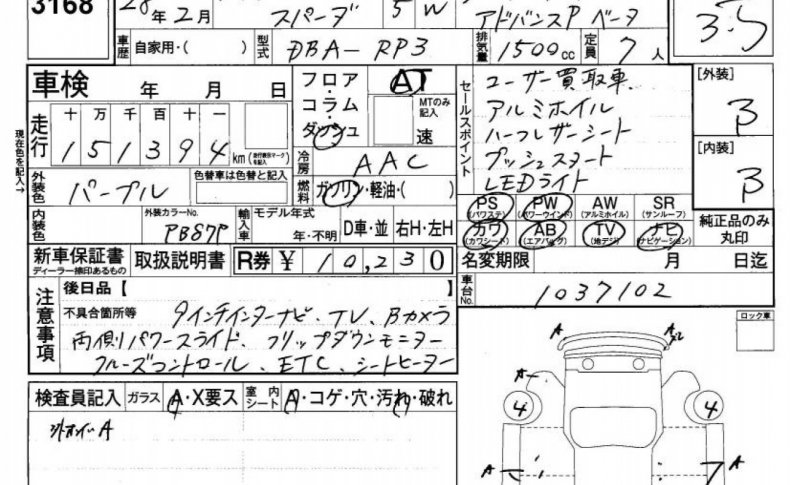 3168
28年2月 スパーダ 5W アドバンスP ベータ 3.5
車歴 自家用・( ) 型式 DBA-RP3 排気量 1500cc 定員 7人
車検 年 月 日
フロア・コラム・ダッシュ AT MTのみ記入 速
セールスポイント
ユーザー買取車
アルミホイル
ハーフレザーシート
プッシュスタート
LEDライト
[外装] B
[内装] B
現在色を記入→
走行 十 万 千 百 十 一
151394 km (走行表示マークを記入)
冷房 AAC
外装色 パープル 色替車は色替と記入
燃料 ガソリン・軽油・( )
内装色 外装カラーNo. PB87P
輸入車 モデル年式 年・不明 D車・並 右H・左H
PS (パワステ) PW (パワーウインド) AW (アルミホイル) SR (サンルーフ)
カワ (カワシート) AB (エアバッグ) TV (地デジ) ナビ (ナビゲーション)
純正品のみ丸印
新車保証書 ディーラー捺印あるもの 取扱説明書 R券 ¥ 10,230
名変期限 月 日迄
車台No. 1037102
注意事項 後日品【
不具合箇所等 9インチインターナビ、TV、Bカメラ
両側パワースライド、フリップダウンモニター
クルーズコントロール、ETC、シートヒーター
ロック車
検査員記入 ガラス A・X要ス 室内シート A・コゲ・穴・汚れ・破れ
A A2
A
4 4
A A